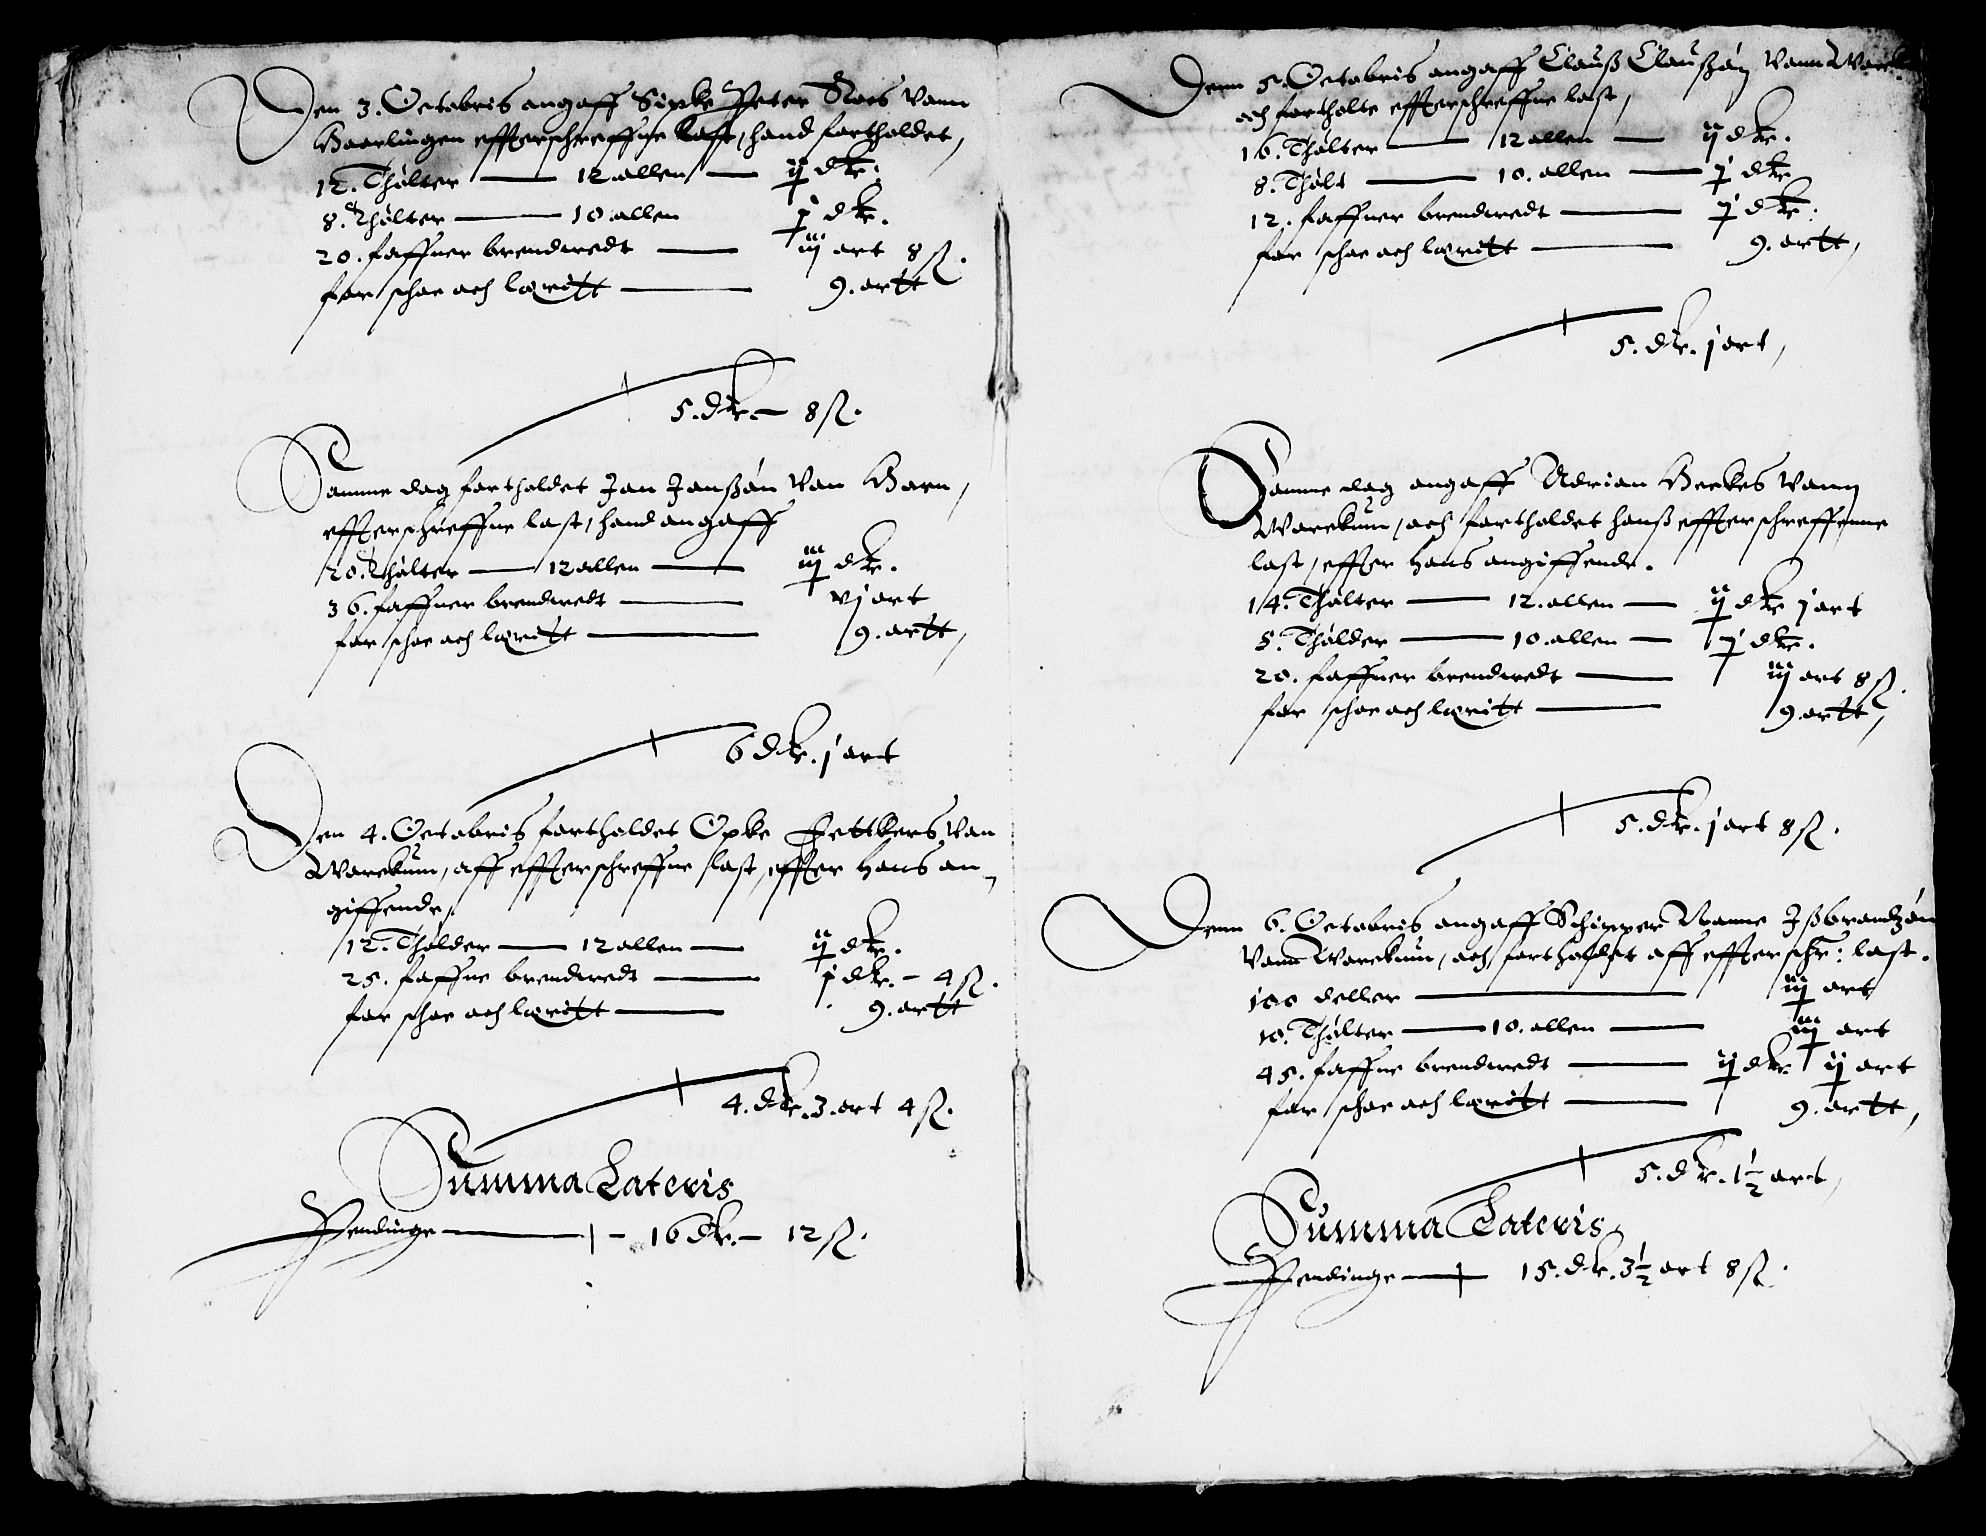 Den 3. Octobris angaff Sipke Peter Roes vann
Haerlingen effterschreffne last, hand fortholdet,
12. Thølter — 12 allen — ij dlr.
8. Thølter — 10 allen j dlr.
20. faffner brendwedt — iij ort 8 ß.
for schoe och løritt — 9. ortt
5. dlr. — 8 ß.
Samme dag fortholdet Jan Janßøn van Horn,
effterschreffne last, hand angaff
20. Thølter — 12 allen — iij dlr.
36. faffner brendwedt — vj ort
for schoe och løritt — 9. ortt,
6 dlr. j ort
Den 4. Octobris fortholdet Opke Fettkers van
Warckum, aff effterschreffne last, effter hans an-
giffende,
12. Thølder — 12 allen — ij dlr.
25. faffne brendwedt — j dlr. — 4 ß.
for schoe och løritt — 9. ortt
4. dlr. 3. ort 4 ß.
Summa Lateris
Pendinge — 16 dlr. — 12 ß.
Denn 5. Octobris angaff Clauß Claußøn vann
och fortholte effterschreffne last,
16. Thølter — 12 allen — ij dlr.
8. Thølt — 10. allen — j dlr
12. faffner brendwedt — j dlr.
for schoe och løritt — 9. ortt,
5. dlr. j ort,
Samme dag angaff Adrian Heckes vann
Warckum, och fortholdet hanß effterschreffne
last, effter hans angiffende.
14. Thølter — 12. allen — ij dlr j ort
8. Thølder — 10. allen — j dlr.
20. faffner brendwedt — iij ort 8 ß.
for schoe och løritt — 9. ortt,
5. dlr. j ort 8 ß.
Denn 6. Octobris angaff Schipper Nanne Ißbrandzøn
vann Warckum, och fortholdet aff effterschr: last.
100 deller — iij ort
10. Thølter — 10. allen — iij ort
45. faffne brendwedt — ij dlr ij ort
for schoe och løritt — 9. ortt,
5. dlr. 1½ ort,
Summa Lateris
Pendinge — 15. dlr. 3½ ort 8 ß.